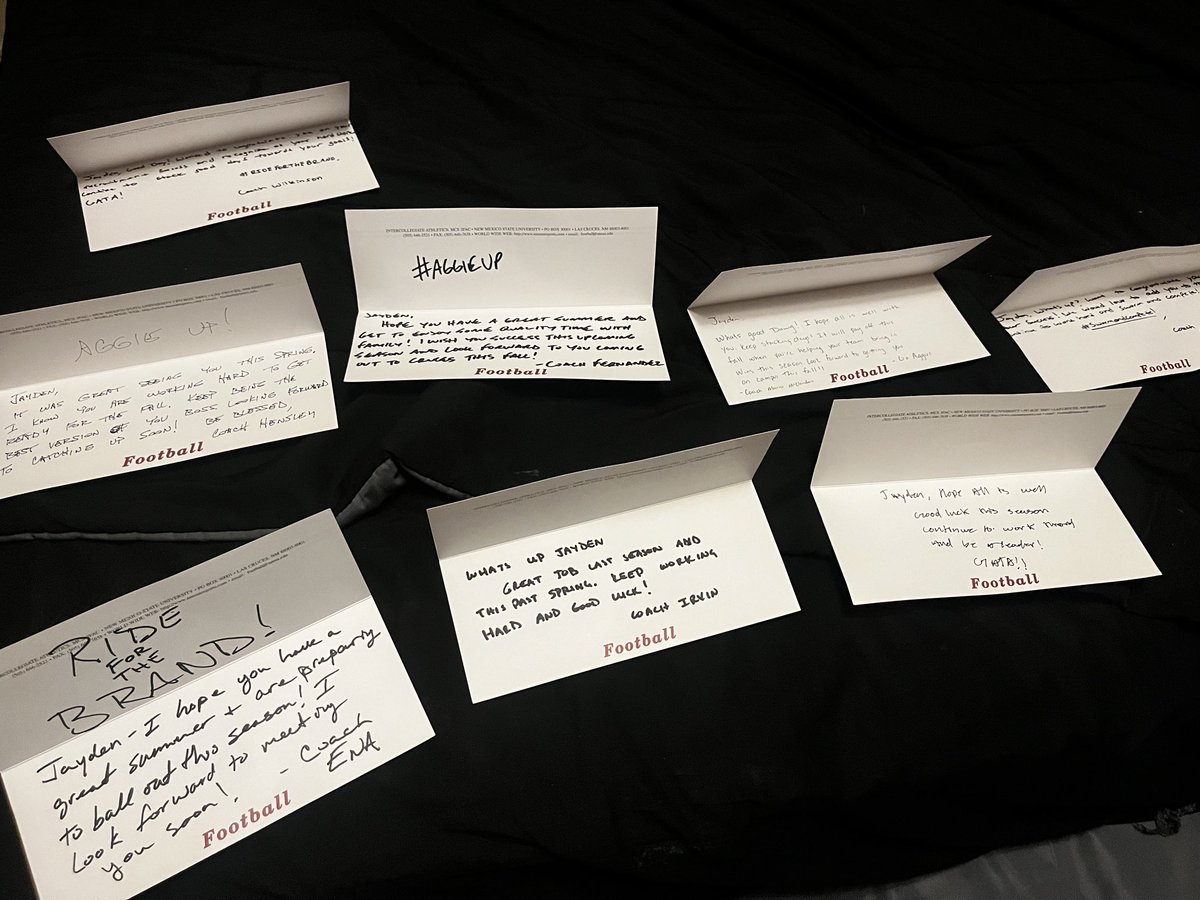 Jayden, Good Day! Wanted to congratulate you on your
recruitment success and recognize all your hard work
continue to stack good days towards your goals!
GATA!
#RIDEFORTHEBRAND.
Coach Wilkinson
Football
INTERCOLLEGIATE ATHLETICS, MCS • NEW MEXICO STATE UNIVERSITY • PO BOX 30001 • LAS CRUCES, NM 88003-8001
#AGGIEUP
JAYDEN,
HOPE YOU HAVE A GREAT SUMMER AND
GET TO ENJOY SOME QUALITY TIME WITH
FAMILY! I WISH YOU SUCCESS THIS UPCOMING
SEASON AND LOOK FORWARD TO YOU COMING
OUT TO CRUCES THIS FALL!
-COACH FERNANDEZ
Football
Jayden
Whats good Dawg! I hope all is well with
you, keep stacking days! It will pay off this
fall when you're helping your team bring in
Wins this season. Look forward to getting you
on campus this fall!!
- Go Aggies
Football
Jayden, whats up? Want to congratulate you
#SwarmandCompete!
Football
NEW MEXICO STATE UNIVERSITY • PO BOX 30001 • LAS CRUCES, NM
AGGIE UP!
JAYDEN,
IT WAS GREAT SEEING YOU THIS SPRING,
I KNOW YOU ARE WORKING HARD TO GET
READY FOR THE FALL. KEEP BEING THE
BEST VERSION OF YOU BOSS LOOKING FORWARD
TO CATCHING UP SOON! BE BLESSED,
COACH HENSLEY
Football
NEW MEXICO STATE UNIVERSITY • PO BOX 30001 • LAS CRUCES, NM
Jayden, Hope All is well
Good luck this season
Continue to work Hard
And be a leader!
GATA!!
Football
WHATS UP JAYDEN
GREAT JOB LAST SEASON AND
THIS PAST SPRING. KEEP WORKING
HARD AND GOOD LUCK!
COACH IRVIN
Football
NEW MEXICO STATE UNIVERSITY • PO BOX 30001 • LAS CRUCES, NM 88003-8001
RIDE
FOR
THE
BRAND!
Jayden - I hope you have a
great summer + are preparing
to ball out this season! I
Look forward to meeting
you soon!
- Coach
ENA
Football